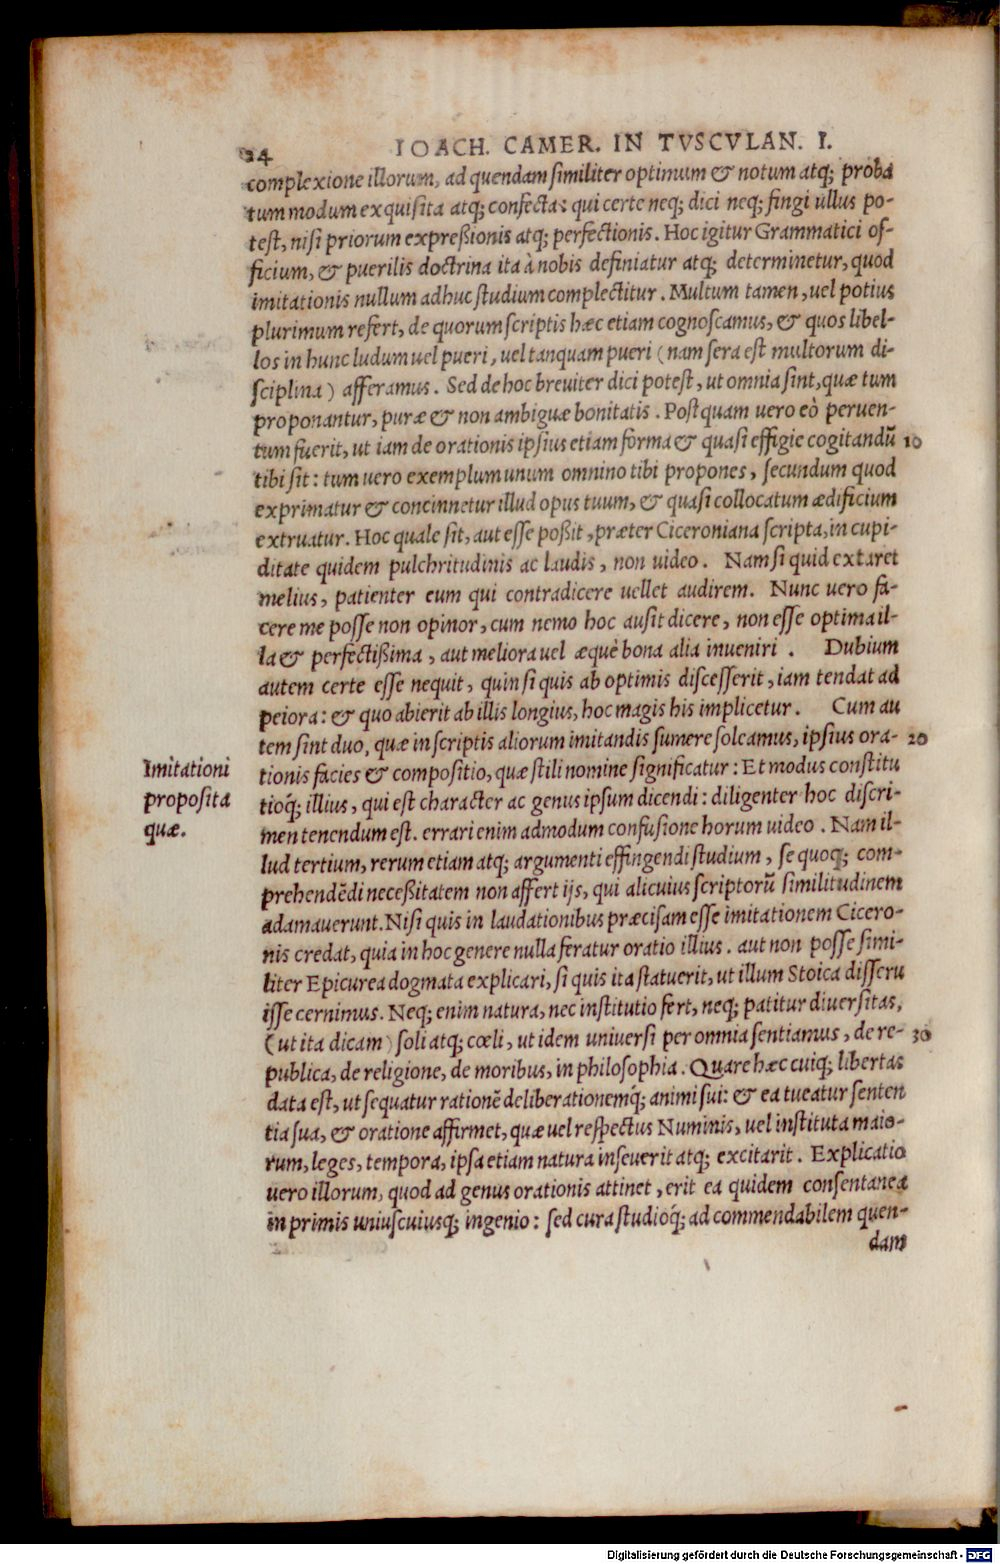 24 IOACH. CAMER. IN TVSCVLAN. I.
complexione illorum, ad quendam similiter optimum & notum atq; proba
tum modum exquisita atq; confecta: qui certe neq; dici neq; fingi ullus po-
test, nisi priorum expreßionis atq; perfectionis. Hoc igitur Grammatici of-
ficium, & puerilis doctrina ita à nobis definiatur atq; determinetur, quod
imitationis nullum adhuc studium complectitur. Multum tamen, uel potius
plurimum refert, de quorum scriptis hæc etiam cognoscamus, & quos libel-
los in hunc ludum uel pueri, uel tanquam pueri (nam sera est multorum di-
sciplina) afferamus. Sed de hoc breuiter dici potest, ut omnia sint, quæ tum
proponantur, puræ & non ambiguæ bonitatis. Postquam uero eò peruen-
tum fuerit, ut iam de orationis ipsius etiam forma & quasi effigie cogitandū 10
tibi sit: tum uero exemplum unum omnino tibi propones, secundum quod
exprimatur & concinnetur illud opus tuum, & quasi collocatum ædificium
extruatur. Hoc quale sit, aut esse poßit, præter Ciceroniana scripta, in cupi-
ditate quidem pulchritudinis ac laudis, non uideo. Nam si quid extaret
melius, patienter eum qui contradicere uellet audirem. Nunc uero fa-
cere me posse non opinor, cum nemo hoc ausit dicere, non esse optima il-
la & perfectißima, aut meliora uel æquè bona alia inueniri. Dubium
autem certe esse nequit, quin si quis ab optimis discesserit, iam tendat ad
peiora: & quo abierit ab illis longius, hoc magis his implicetur. Cum au
tem sint duo, quæ in scriptis aliorum imitandis sumere soleamus, ipsius ora- 20
Imitationi
proposita
quæ.
tionis facies & compositio, quæ stili nomine significatur: Et modus constitu
tioq́; illius, qui est character ac genus ipsum dicendi: diligenter hoc discri-
men tenendum est. errari enim admodum confusione horum uideo. Nam il-
lud tertium, rerum etiam atq; argumenti effingendi studium, se quoq; com-
prehendēdi neceßitatem non affert ijs, qui alicuius scriptorū similitudinem
adamauerunt. Nisi quis in laudationibus præcisam esse imitationem Cicero-
nis credat, quia in hoc genere nulla feratur oratio illius. aut non posse simi-
liter Epicurea dogmata explicari, si quis ita statuerit, ut illum Stoica disseru
isse cernimus. Neq; enim natura, nec institutio fert, neq; patitur diuersitas,
(ut ita dicam) soli atq; cœli, ut idem uniuersi per omnia sentiamus, de re- 30
publica, de religione, de moribus, in philosophia. Quare hæc cuiq; libertas
data est, ut sequatur rationē deliberationemq́; animi sui: & ea tueatur senten
tia sua, & oratione affirmet, quæ uel respectus Numinis, uel instituta maio-
rum, leges, tempora, ipsa etiam natura inseuerit atq; excitarit. Explicatio
uero illorum, quod ad genus orationis attinet, erit ea quidem consentanea
in primis uniuscuiusq; ingenio: sed cura studioq́; ad commendabilem quen-
dam
Digitalisierung gefördert durch die Deutsche Forschungsgemeinschaft - DFG